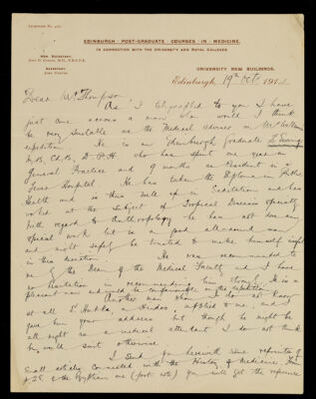 EDINBURGH POST-GRADUATE COURSES IN MEDICINE.
IN CONNECTION WITH THE UNIVERSITY AND ROYAL COLLEGES
HON. SECRETARY,
SECRETARY
UNIVERSITY NEW BUILDINGS,
Edinburgh, 19th Oct 191
Dear Mr Thompson
As I telegraphed to you I have
just come across a man who would I think
be very suitable as the Medical adviser on Mr Wellcome's
expedition. He is an Edinburgh graduate
M.B., Ch.B., D.P.H. who has spent one year in
General Practice and 9 months as Resident in a
Fever Hospital. He has taken the Diploma in Public
Health and is thus well up in Sanitation and has
worked at the subject of Tropical Diseases specially
With regard to Anthropology he has not done any
special work but is a good all-round man
and might safely be trusted to make himself useful
in this direction. He was recommended to
me by the Dean of the Medical Faculty and I have
no hesitation in recommending him strongly. He is a
pleasant man and would be companionable on the expedition.
Another man whom I do not know
at all Dr a Hindoo applied to me, and I
gave him your address but though he might be
all right as a medical attendant I do not think
he would suit otherwise.
I send you herewith some reprints of
small articles connected with the History of Medicine. From
you will get the reference